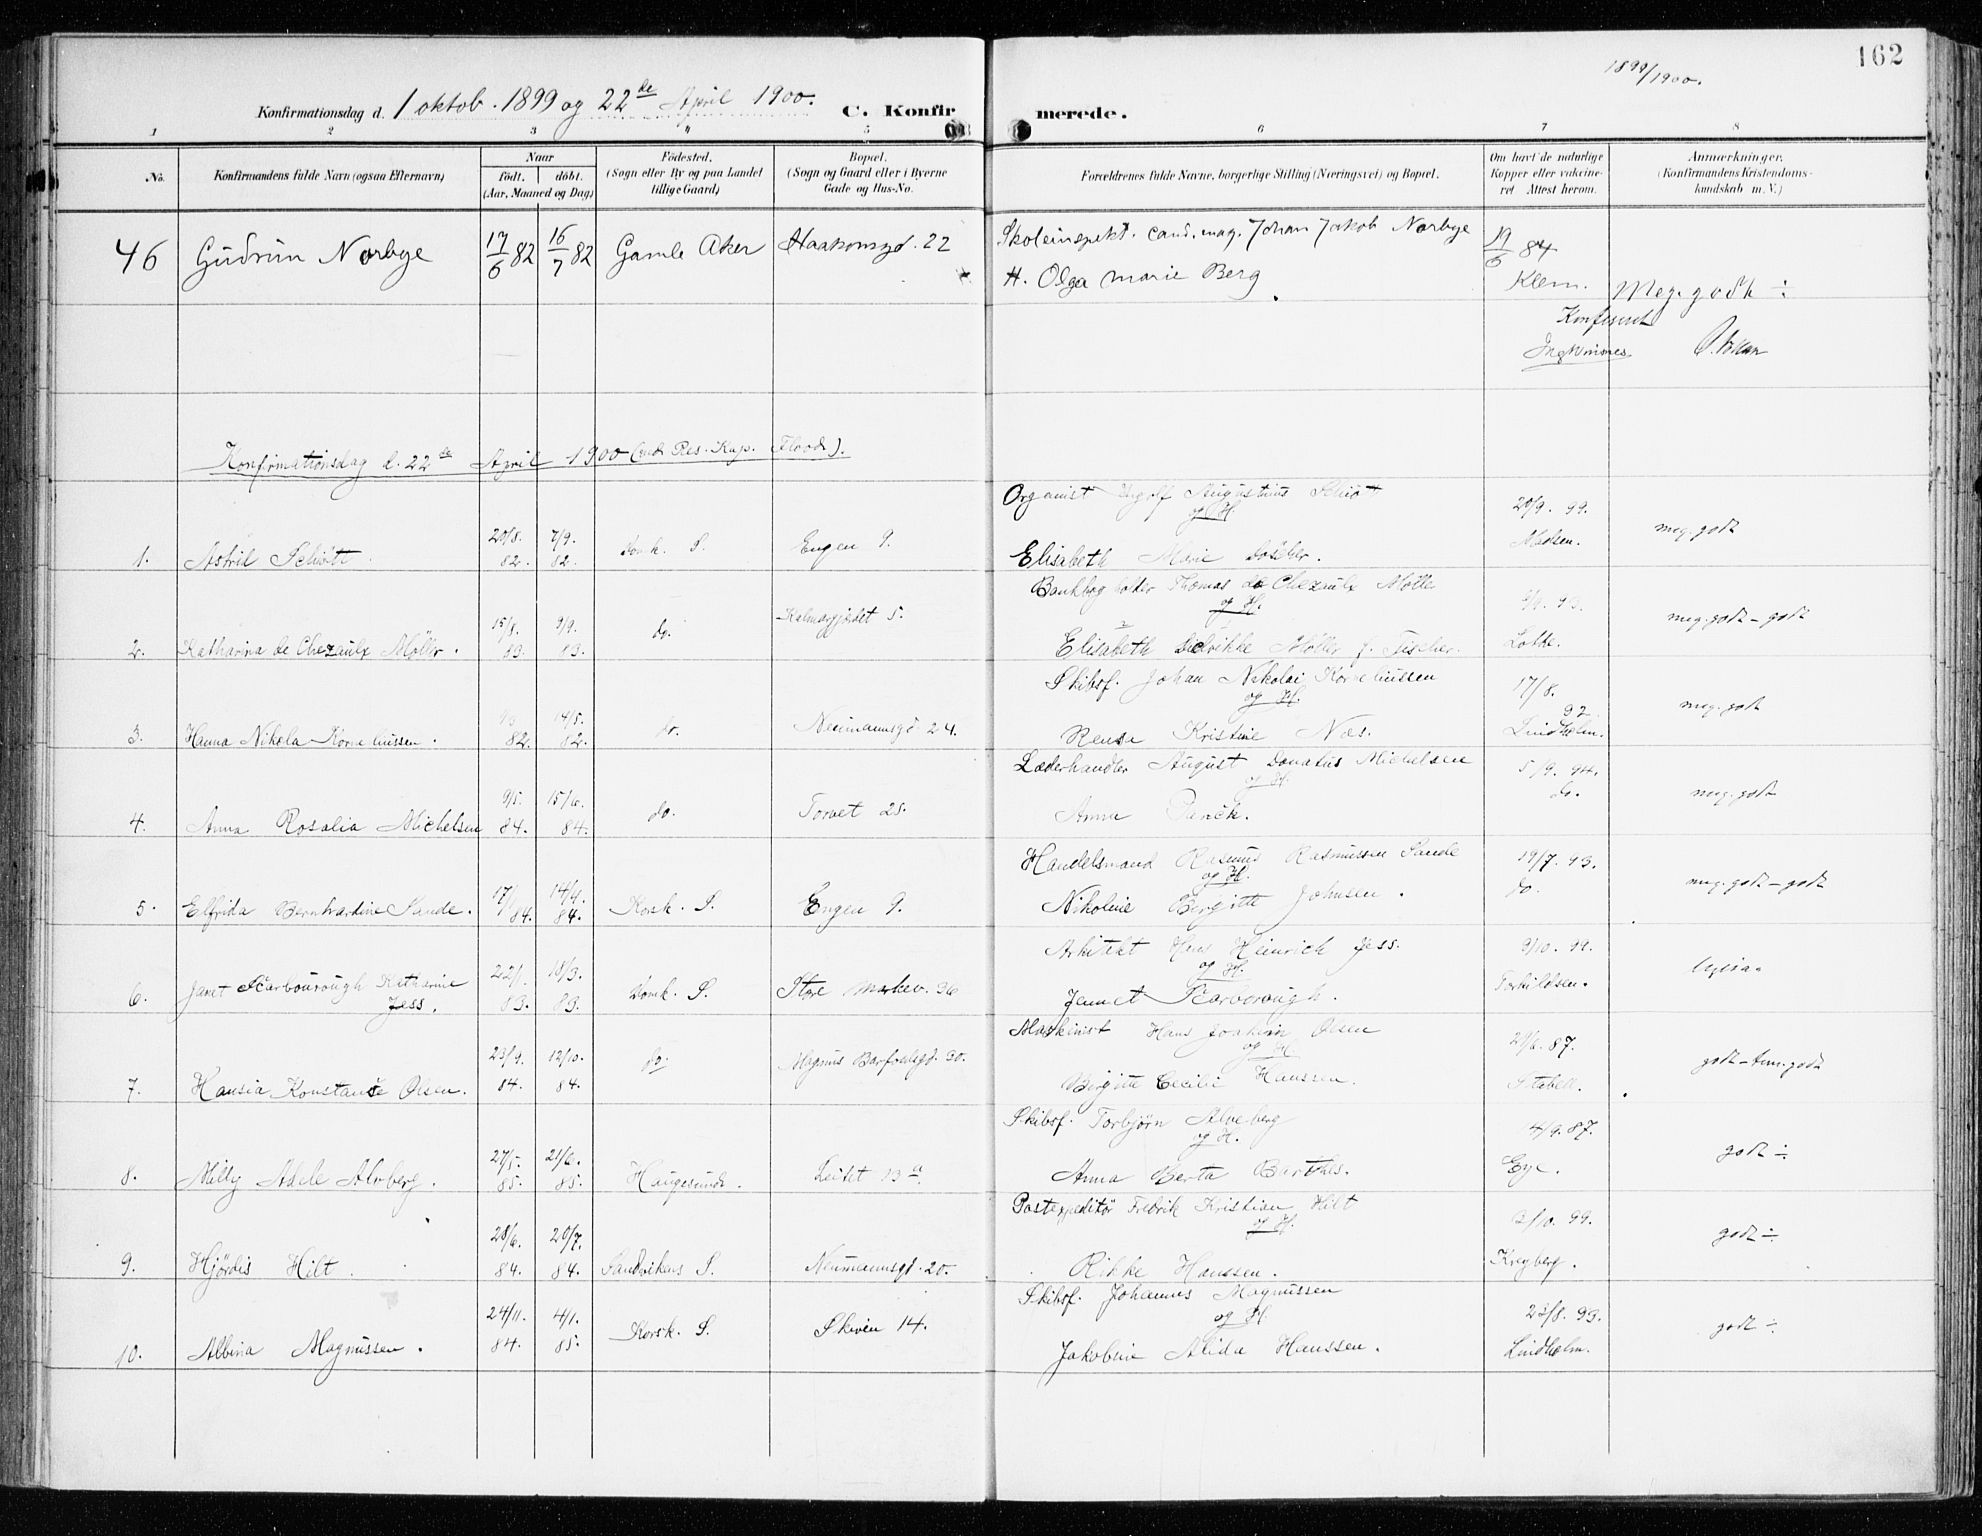 162
1899/1900.
Konfirmationsdag d. 1 oktob. 1899 og 22de April 1900.
C. Konfirmerede.
1 2 3 4 5 6 7 8
No. Konfirmandens fulde Navn (ogsaa Efternavn) Naar født. døbt. (Aar, Maaned og Dag) Fødested. (Sogn eller By og paa Landet tillige Gaard) Bopæl. (Sogn og Gaard eller i Byerne Gade og Hus-No. Forældrenes fulde Navne, borgerlige Stilling (Næringsvei) og Bopæl. Om havt de naturlige Kopper eller vakcineret Attest herom. Anmærkninger. (Konfirmandens Kristendomskundskab m. V.)
46 Gudrun Norbye 17/6 82 16/7 82 Gamle Aker Haakonsgd. 22 Skoleinspekt. cand. mag. Johan Jakob Norbye 19/6 84
H. Olga Marie Berg Klem. Meg. godt ÷
Konfereret
Konfirmationsdag d. 22de April 1900 (ved Res. Kap. Flood).
Organist Ingolf Augustinus Schiøtt
og H.
1. Astrid Schiøtt. 20/8. 82. 7/9. 82. Domk. S. Engen 9. Elisabeth Marie 20/9. 99. Madsen. meg. godt
Bankbogholder Thomas de Chezaulx Møller
og H.
2. Katharina de Chezaulx Møller. 15/8. 83. 9/9. 83. do. Kalmargjædet 5. Elisabeth Didrikke Møller f. Fischer. 9/9. 93. Lothe. meg. godt - godt
Skibsf. Johan Nikolai Korneliussen
og H.
3. Hanna Nikola Korneliussen. 82. 14/5. 82. do. Neumannsgd 24. Kristine Næs. 17/8. 92. Lindholm. meg. godt
Læderhandler August Donatus Michelsen
og H.
4. Anna Rosalia Michelsen 9/5. 84. 15/6. 84. do. Torvet 25. Anna 5/9. 94. do. meg. godt
Handelsmand Rasmus Rasmussen Sande
og H.
5. Elfrida Bernhardine Sande. 17/1 84. 14/4. 84. Korsk. S. Engen 9. Nikoline Birgitte Johnsen. 19/7. 93. do. meg. godt - godt
Arkitekt Hans Heinrich Jess.
og H.
6. Janet Scarbourough Katharine Jess. 22/1. 83. 18/3. 83. Domk. S. Stre Markev. 36 Jennet Scarborough. 9/10. 99. Torkildsen.
Maskinist Hans Joakim Olsen
og H.
7. Hansia Konstanse Olsen. 23/9. 84. 12/10. 84. do. Magnus Barfodsgd. 30. Birgitte Cecilie Hanssen. 29/6. 87. Stabell. godt - tem. godt
Skibsf. Torbjørn Alveberg
og H.
8. Milly Adele Alvberg. 27/5. 85. 21/6. 85. Haugesund. Leitet 13a Anna Berta Barthes. 4/9. 87. Eye. godt ÷
Postexpeditør Fredrik Kristian Hilt
og H.
9. Hjørdis Hilt. 28/6. 84. 20/7. 84. Sandvikens S. Neumannsgd. 20. Rikke Hanssen. 2/10. 99. Kregberg. godt ÷
Skibsf. Johannes Magnussen
og H.
10. Albina Magnussen. 24/11. 84. 4/1. 85. Korsk. S. Skiven 14. Jakobine Alida Hanssen. 23/8. 93. Lindholm. godt ÷